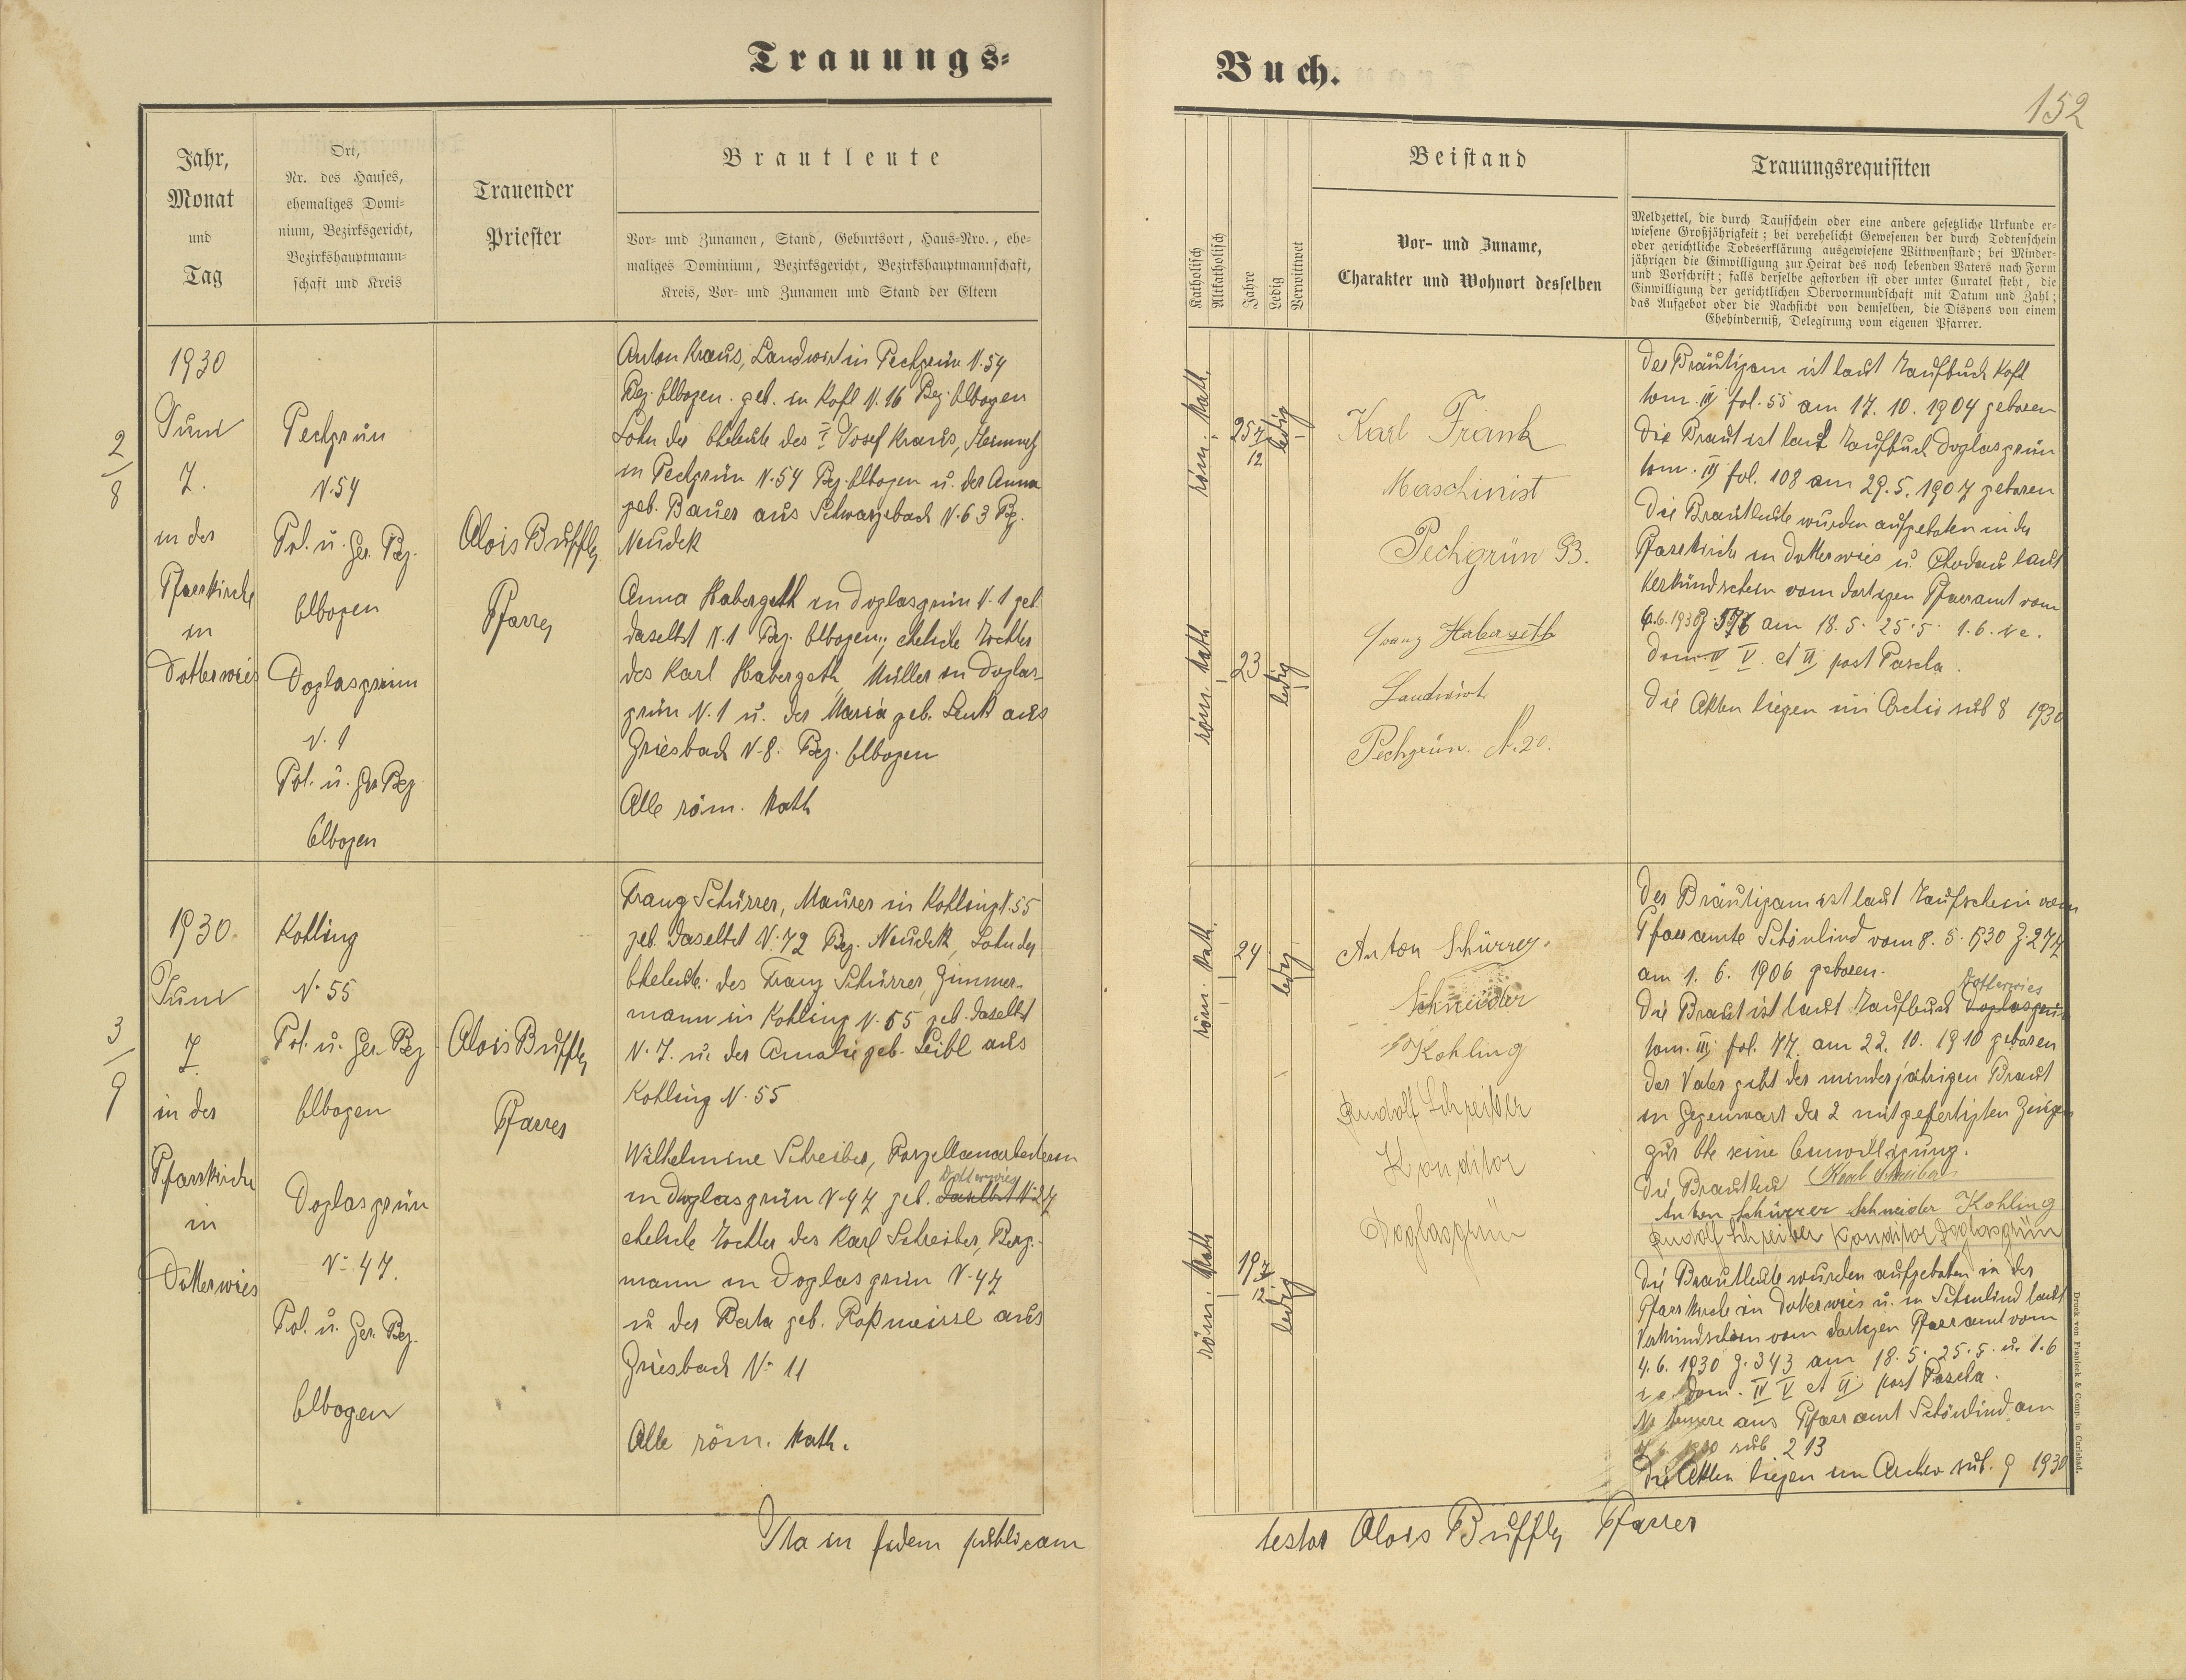 Trauungs-
Buch.
152
Jahr,
Monat
und
Tag
Ort,
Nr. des Hauses,
ehemaliges Domi-
nium, Bezirksgericht,
Bezirkshauptmann-
schaft und Kreis
Trauender
Priester
Brautleute
Vor- und Zunamen, Stand, Geburtsort, Haus-Nro., ehe-
maliges Dominium, Bezirksgericht, Bezirkshauptmannschaft,
Kreis, Vor- und Zunamen und Stand der Eltern
Katholisch
Altkatholisch
Jahre
Ledig
Verwittwet
Beistand
Vor- und Zuname,
Charakter und Wohnort desselben
Trauungsrequisiten
Meldzettel, die durch Taufschein oder eine andere gesetzliche Urkunde er-
wiesene Großjährigkeit; bei verehelicht Gewesenen der durch Todtenschein
oder gerichtliche Todeserklärung ausgewiesene Wittwenstand; bei Minder-
jährigen die Einwilligung zur Heirat des noch lebenden Vaters nach Form
und Vorschrift; falls derselbe gestorben ist oder unter Curatel steht, die
Einwilligung der gerichtlichen Obervormundschaft mit Datum und Zahl;
das Aufgebot oder die Nachsicht von demselben, die Dispens von einem
Ehehinderniß, Delegirung vom eigenen Pfarrer.
2
8
1930
Juni
7.
in der
Pfarrkirche
in
Dotterwies
Pechgrün
N. 54
Pol. u. Ger. Bez.
Elbogen
Doglasgrün
N. 1
Pol. u. Ger Bez
Elbogen
Alois Buffly
Pfarrer
Anton Kraus, Landwirt in Pechgrün N. 54
Bez. Elbogen. geb. in Kofl N. 16 Bez. Elbogen
Sohn der Eheleute des † Josef Kraus,
in Pechgrün N. 54 Bez. Elbogen u. der Anna
geb. Bauer aus Schwarzbach N. 63 Bz.
Neudek
Anna Habergeth in Doglasgrün N. 1 geb.
daselbst N. 1 Bez. Elbogen, eheliche Tochter
des Karl Habergeth, Müller in Doglas-
grün N. 1 u. der Maria geb. Lenk aus
Griesbach N. 8. Bez. Elbogen
Alle röm. kath
röm. kath.
25 7/12
ledig
röm. kath
23
ledig
Karl Frank
Maschinist
Pechgrün 93.
Franz Haberzeth
Landwirt
Pechgrün. N. 20.
Der Bräutigam ist laut Taufbuch Kofl
tom. III fol. 55 am 17. 10. 1904 geboren
Die Braut ist laut Taufbuch Doglasgrün
tom. III fol. 108 am 29. 5. 1907 geboren
Die Brautleute wurden aufgeboten in der
Pfarrkirche in Dotterwies u. Chodau laut
Verkündschein vom dortigen Pfarramt vom
6. 6. 1930 Z 576 am 18. 5. 25. 5. 1. 6. i. e.
dom. IV V. et VI post Pascha.
Die Akten liegen im Archiv sub 8 1930
3
9
1930.
Juni
7.
in der
Pfarrkirche
in
Dotterwies
Kohling
N. 55
Pol. u. Ger. Bez
Elbogen
Doglasgrün
N. 47.
Pol. u. Ger. Bez.
Elbogen
Alois Buffly
Pfarrer
Franz Schürrer, Maurer in Kohling N. 55
geb. daselbst N. 72 Bez. Neudek, Sohn der
Eheleute des Franz Schürrer, Zimmer-
mann in Kohling N. 55 geb. daselbst
N. 7. u. der Amalie geb. Leibl aus
Kohling N. 55
Wilhelmine Schreiber, Porzellanarbeiterin
Dotterwies
in Doglasgrün N. 47 geb. daselbst N. 27
eheliche Tochter des Karl Schreiber, Berg-
mann in Doglasgrün N. 47
u. der Berta geb. Roßmeissl aus
Griesbach N. 11
Alle röm. kath.
röm. kath.
24
ledig
röm. kath
19 7/12
ledig
Anton Schürrer.
Schneider
Kohling
Rudolf Schreiber
Konditor
Doglasgrün
Der Bräutigam ist laut Taufschein vom
Pfarramte Schönlind vom 8. 5. 1930 Z. 274
am 1. 6. 1906 geboren.
Dotterwies
Die Braut ist laut Taufbuch Doglasgrün
tom. III fol. 77. am 22. 10. 1910 geboren
Der Vater gibt der minderjährigen Braut
in Gegenwart der 2 mitgefertigten Zeugen
zur Ehe seine Einwilligung.
Die Brautleu Karl Schreiber
Anton Schürrer Schneider Kohling
Rudolf Schreiber Konditor Doglasgrün
Die Brautleute wurden aufgeboten in der
Pfarrkirche in Dotterwies u. in Schönlind laut
Verkündschein vom dortigen Pfarramt vom
4. 6. 1930 Z. 343 am 18. 5. 25. 5. u. 1. 6
i. e. dom. IV V et VI post Pascha.
Ne temere aus Pfarramt Schönlind am
1930 sub 213
Die Akten liegen im Archiv sub. 9 1930
Ita in fidem publicam
testor Alois Buffly Pfarrer
Druck von Franieck & Comp. in Carlsbad.